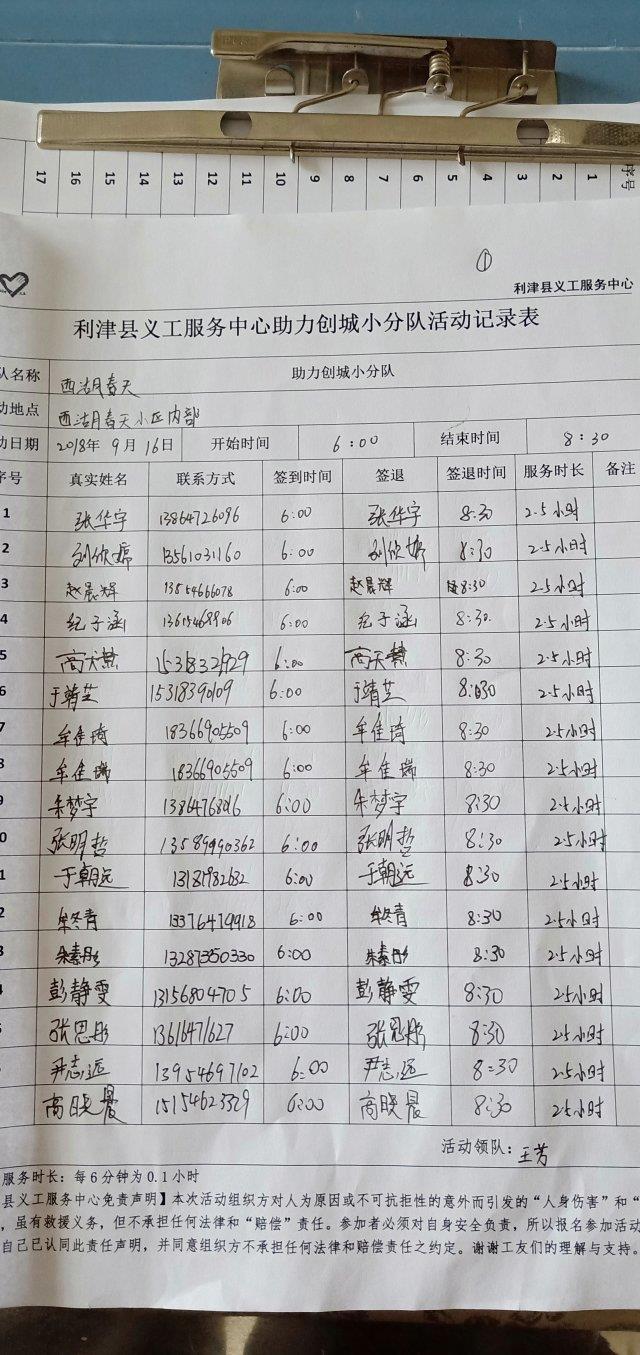 17 16 15 14 13 12 11 10 9 8 7 6 5 4 3 2 1 序号
①
利津县义工服务中心
利津县义工服务中心助力创城小分队活动记录表
队名称 西湖春天 助力创城小分队
动地点 西湖春天小区内部
动日期 2018年9月16日 开始时间 6:00 结束时间 8:30
序号 真实姓名 联系方式 签到时间 签退 签退时间 服务时长 备注
1 张华宇 13864726096 6:00 张华宇 8:30 2.5小时
2 刘欣婷 13561031160 6:00 刘欣婷 8:30 2.5小时
3 赵晨辉 13854666078 6:00 赵晨辉 8:30 2.5小时
4 纪子涵 6:00 纪子涵 8:30 2.5小时
5 高天慧 6:00 高天慧 8:30 2.5小时
6 于靖芝 15318390109 6:00 于靖芝 8:30 2.5小时
7 牟佳琦 18366905509 6:00 牟佳琦 8:30 2.5小时
8 牟佳瑞 18366905509 6:00 牟佳瑞 8:30 2.5小时
9 朱梦宇 6:00 朱梦宇 8:30 2.5小时
0 张明哲 13589990362 6:00 张明哲 8:30 2.5小时
1 于朝远 13181982632 6:00 于朝远 8:30 2.5小时
2 牟冬青 13376479918 6:00 牟冬青 8:30 2.5小时
3 朱素彤 13287350330 6:00 朱素彤 8:30 2.5小时
4 彭静雯 13156804705 6:00 彭静雯 8:30 2.5小时
张思彤 6:00 张思彤 8:30 2.5小时
尹志远 13954697102 6:00 尹志远 8:30 2.5小时
高晓晨 15154623329 6:00 高晓晨 8:30 2.5小时
活动领队：王芳
服务时长：每6分钟为0.1小时
县义工服务中心免责声明】本次活动组织方对人为原因或不可抗拒性的意外而引发的“人身伤害”和“
，虽有救援义务，但不承担任何法律和“赔偿”责任。参加者必须对自身安全负责，所以报名参加活动
自己已认同此责任声明，并同意组织方不承担任何法律和赔偿责任之约定。谢谢工友们的理解与支持。